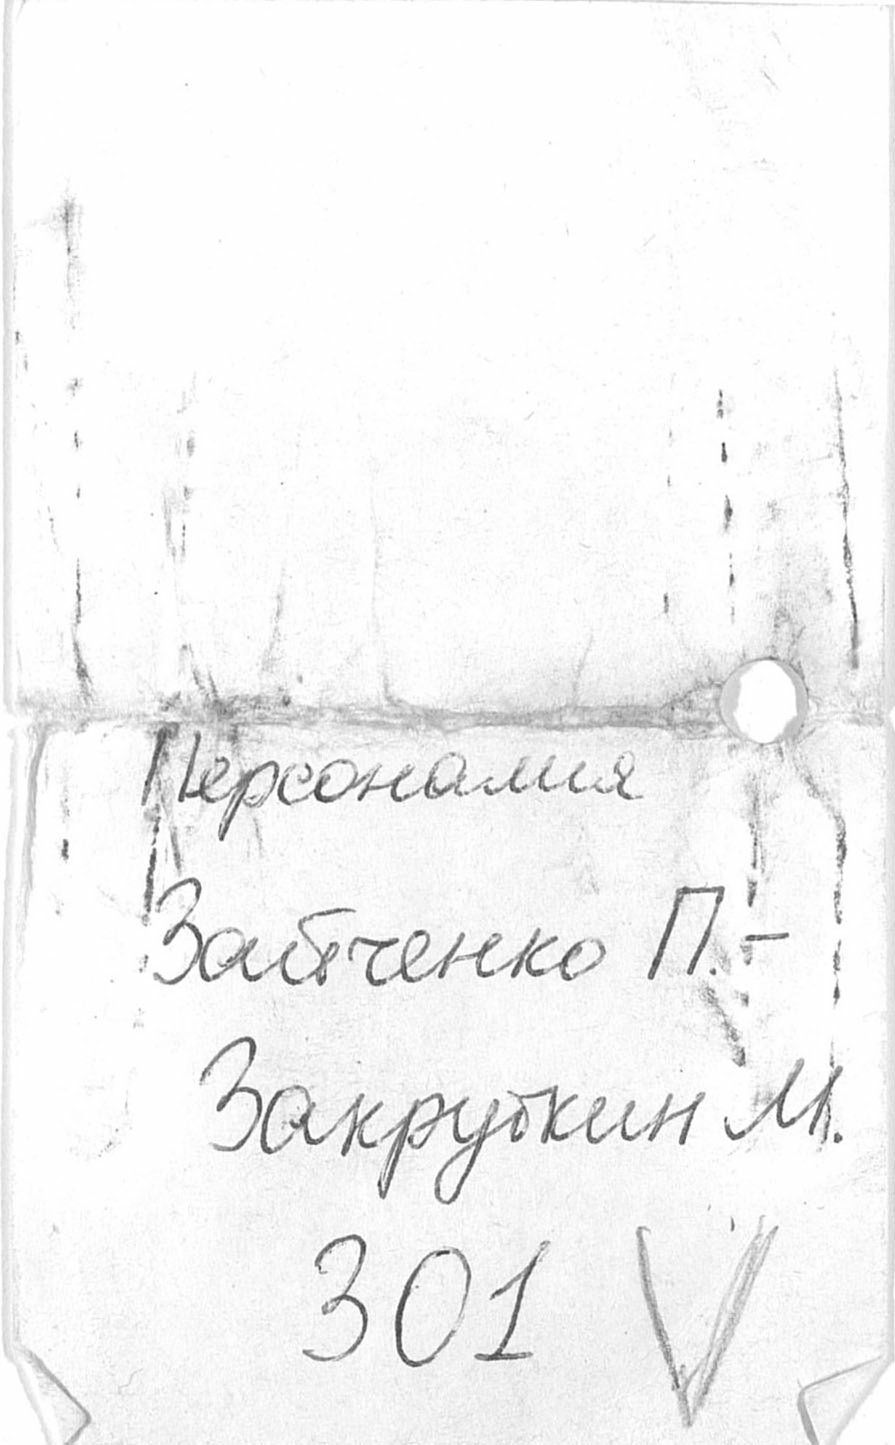 Персоналия
Зайченко П. –
Закруткин М.
301 V